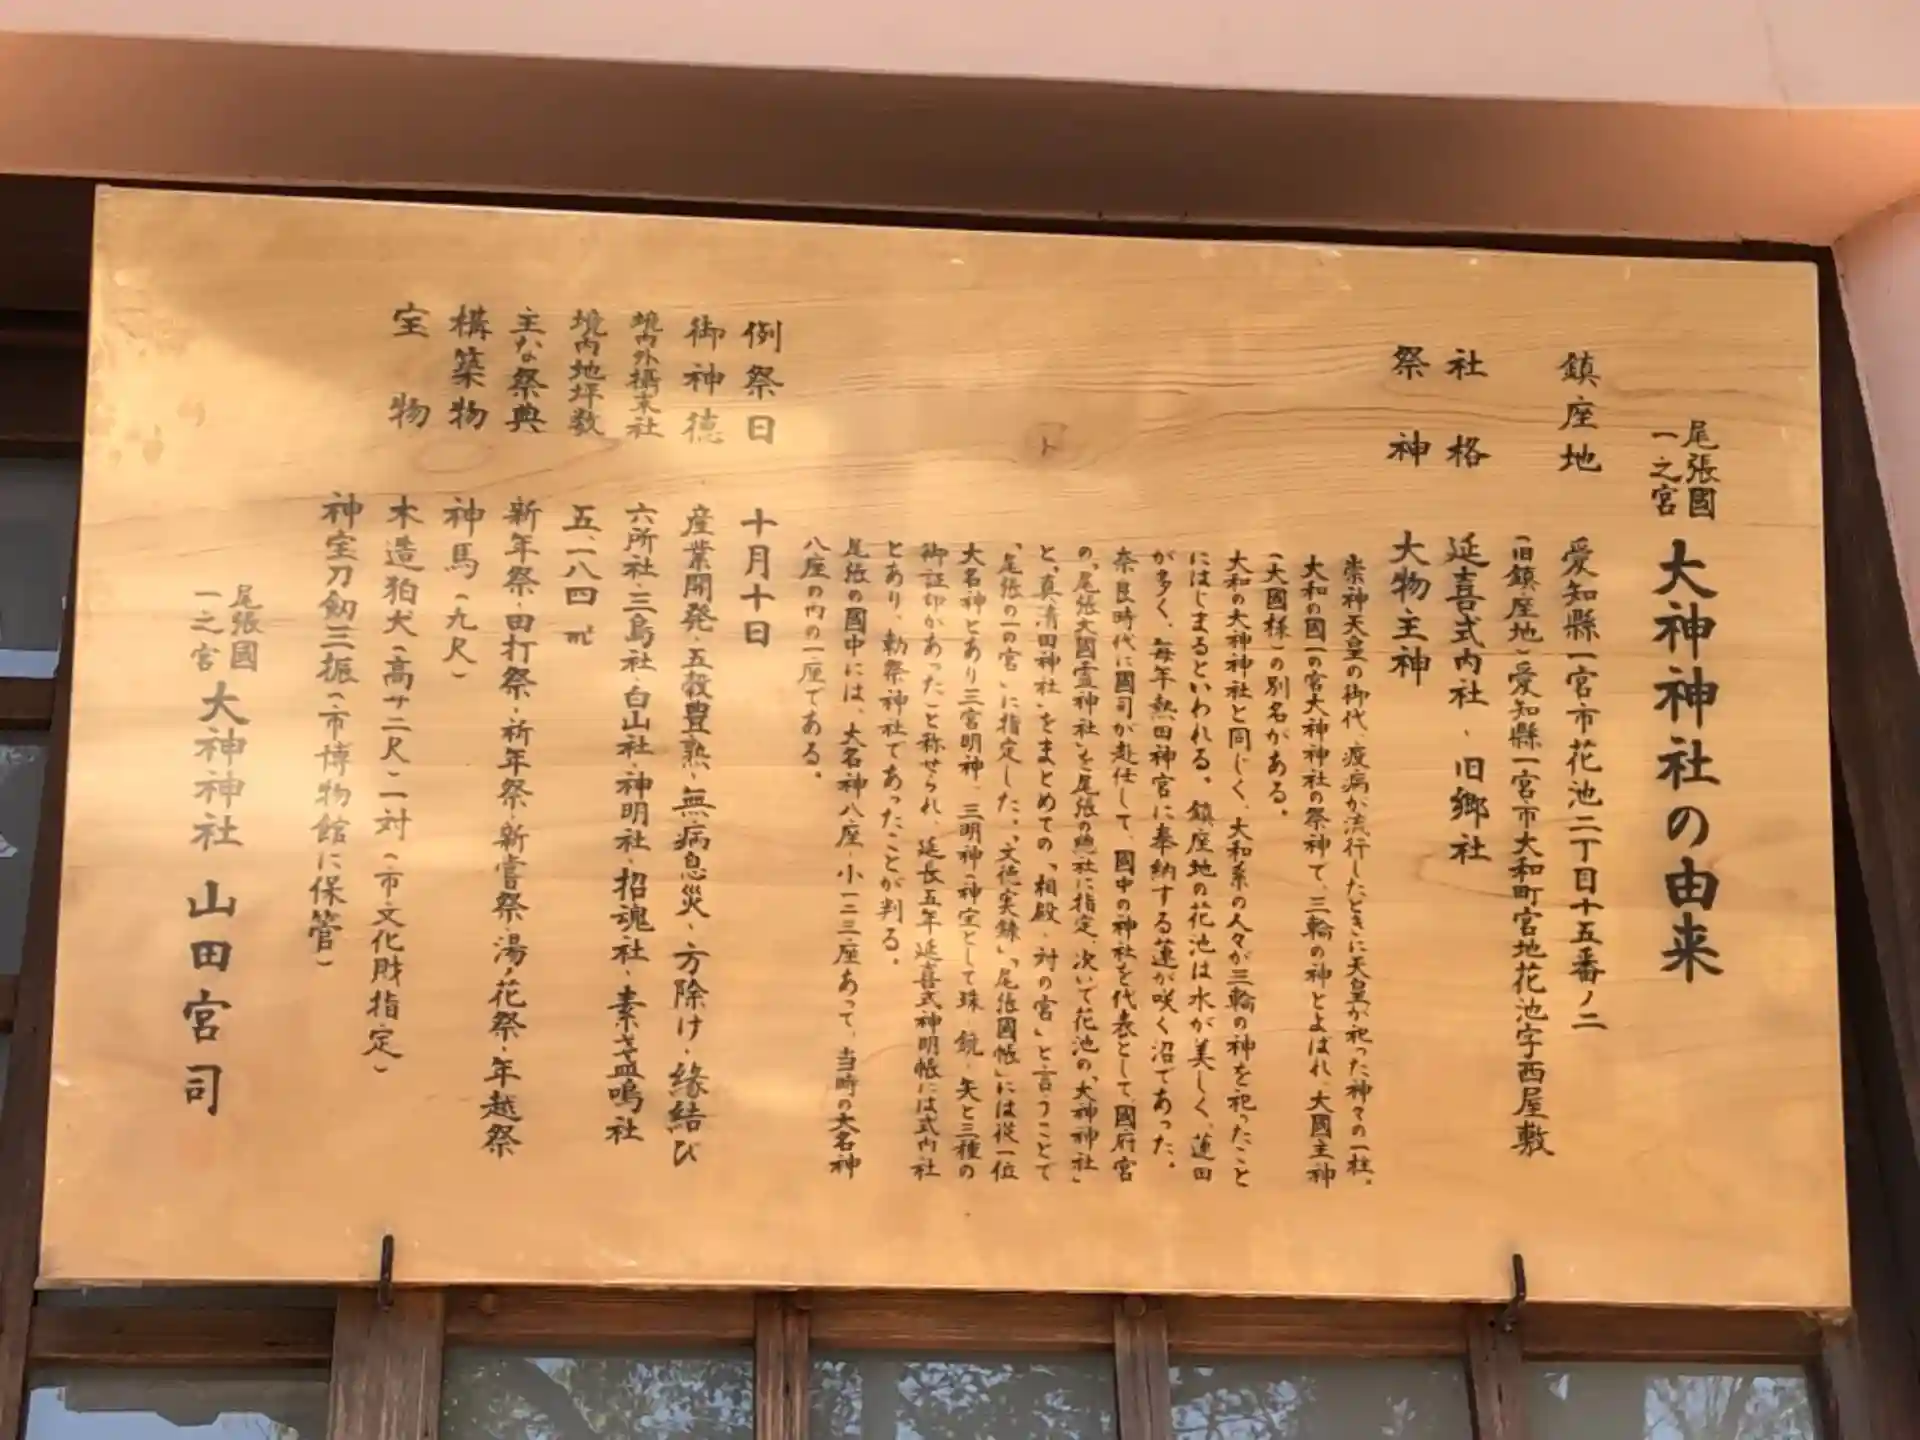 尾張國
一之宮 大神神社の由来
鎮座地 愛知縣一宮市花池二丁目十五番ノ二
(旧鎮座地)愛知縣一宮市大和町宮地花池字西屋敷
社格 延喜式内社、旧郷社
祭神 大物主神
崇神天皇の御代、疫病が流行したときに天皇が祀った神々の一柱。
大和の國一の宮大神神社の祭神で、三輪の神とよばれ、大國主神
(大國様)の別名がある。
大和の大神神社と同じく、大和系の人々が三輪の神を祀ったこと
にはじまるといわれる。鎮座地の花池は水が美しく、蓮田
が多く、毎年熱田神宮に奉納する蓮が咲く沼であった。
奈良時代に國司が赴任して、國中の神社を代表として、國府宮
の、「尾張大國霊神社」を尾張の總社に指定、次いで花池の、「大神神社」
と、「真清田神社」をまとめての「相殿・対の宮」と言うことで
「尾張の一の宮」に指定した。「文徳実録」「尾張國帳」には従一位
大名神とあり三宮明神、三明神(神宝として珠・鏡・矢と三種の
御証印があった)と称せられ、延長五年延喜式神明帳には式内社
とあり、勅祭神社であったことが判る。
尾張の國中には、大名神八座・小一一三座あって、当時の大名神
八座の内の一座である。
例祭日 十月十日
御神徳 産業開発・五穀豊熟・無病息災・方除け・縁結び
境内外攝末社 六所社・三島社・白山社・神明社・招魂社・素盞鳴社
境内地坪数 五、一八四㎡
主なる祭典 新年祭・田打祭・祈年祭・新嘗祭・湯ノ花祭・年越祭
構築物 神馬(九尺)
宝物 木造狛犬(高サ二尺)一対(市文化財指定)
神宝刀劔三振(市博物館に保管)
尾張國
一之宮 大神神社 山田宮司